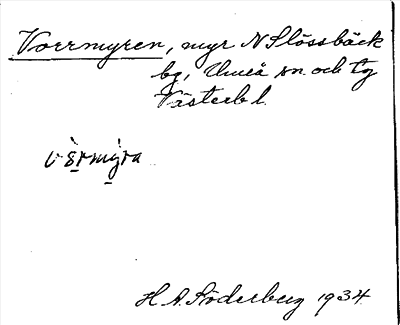 Vorrmyren, myr N Slössbäck
by, Umeå sn. och tg
Västerb l.
H. A. Söderberg 1934